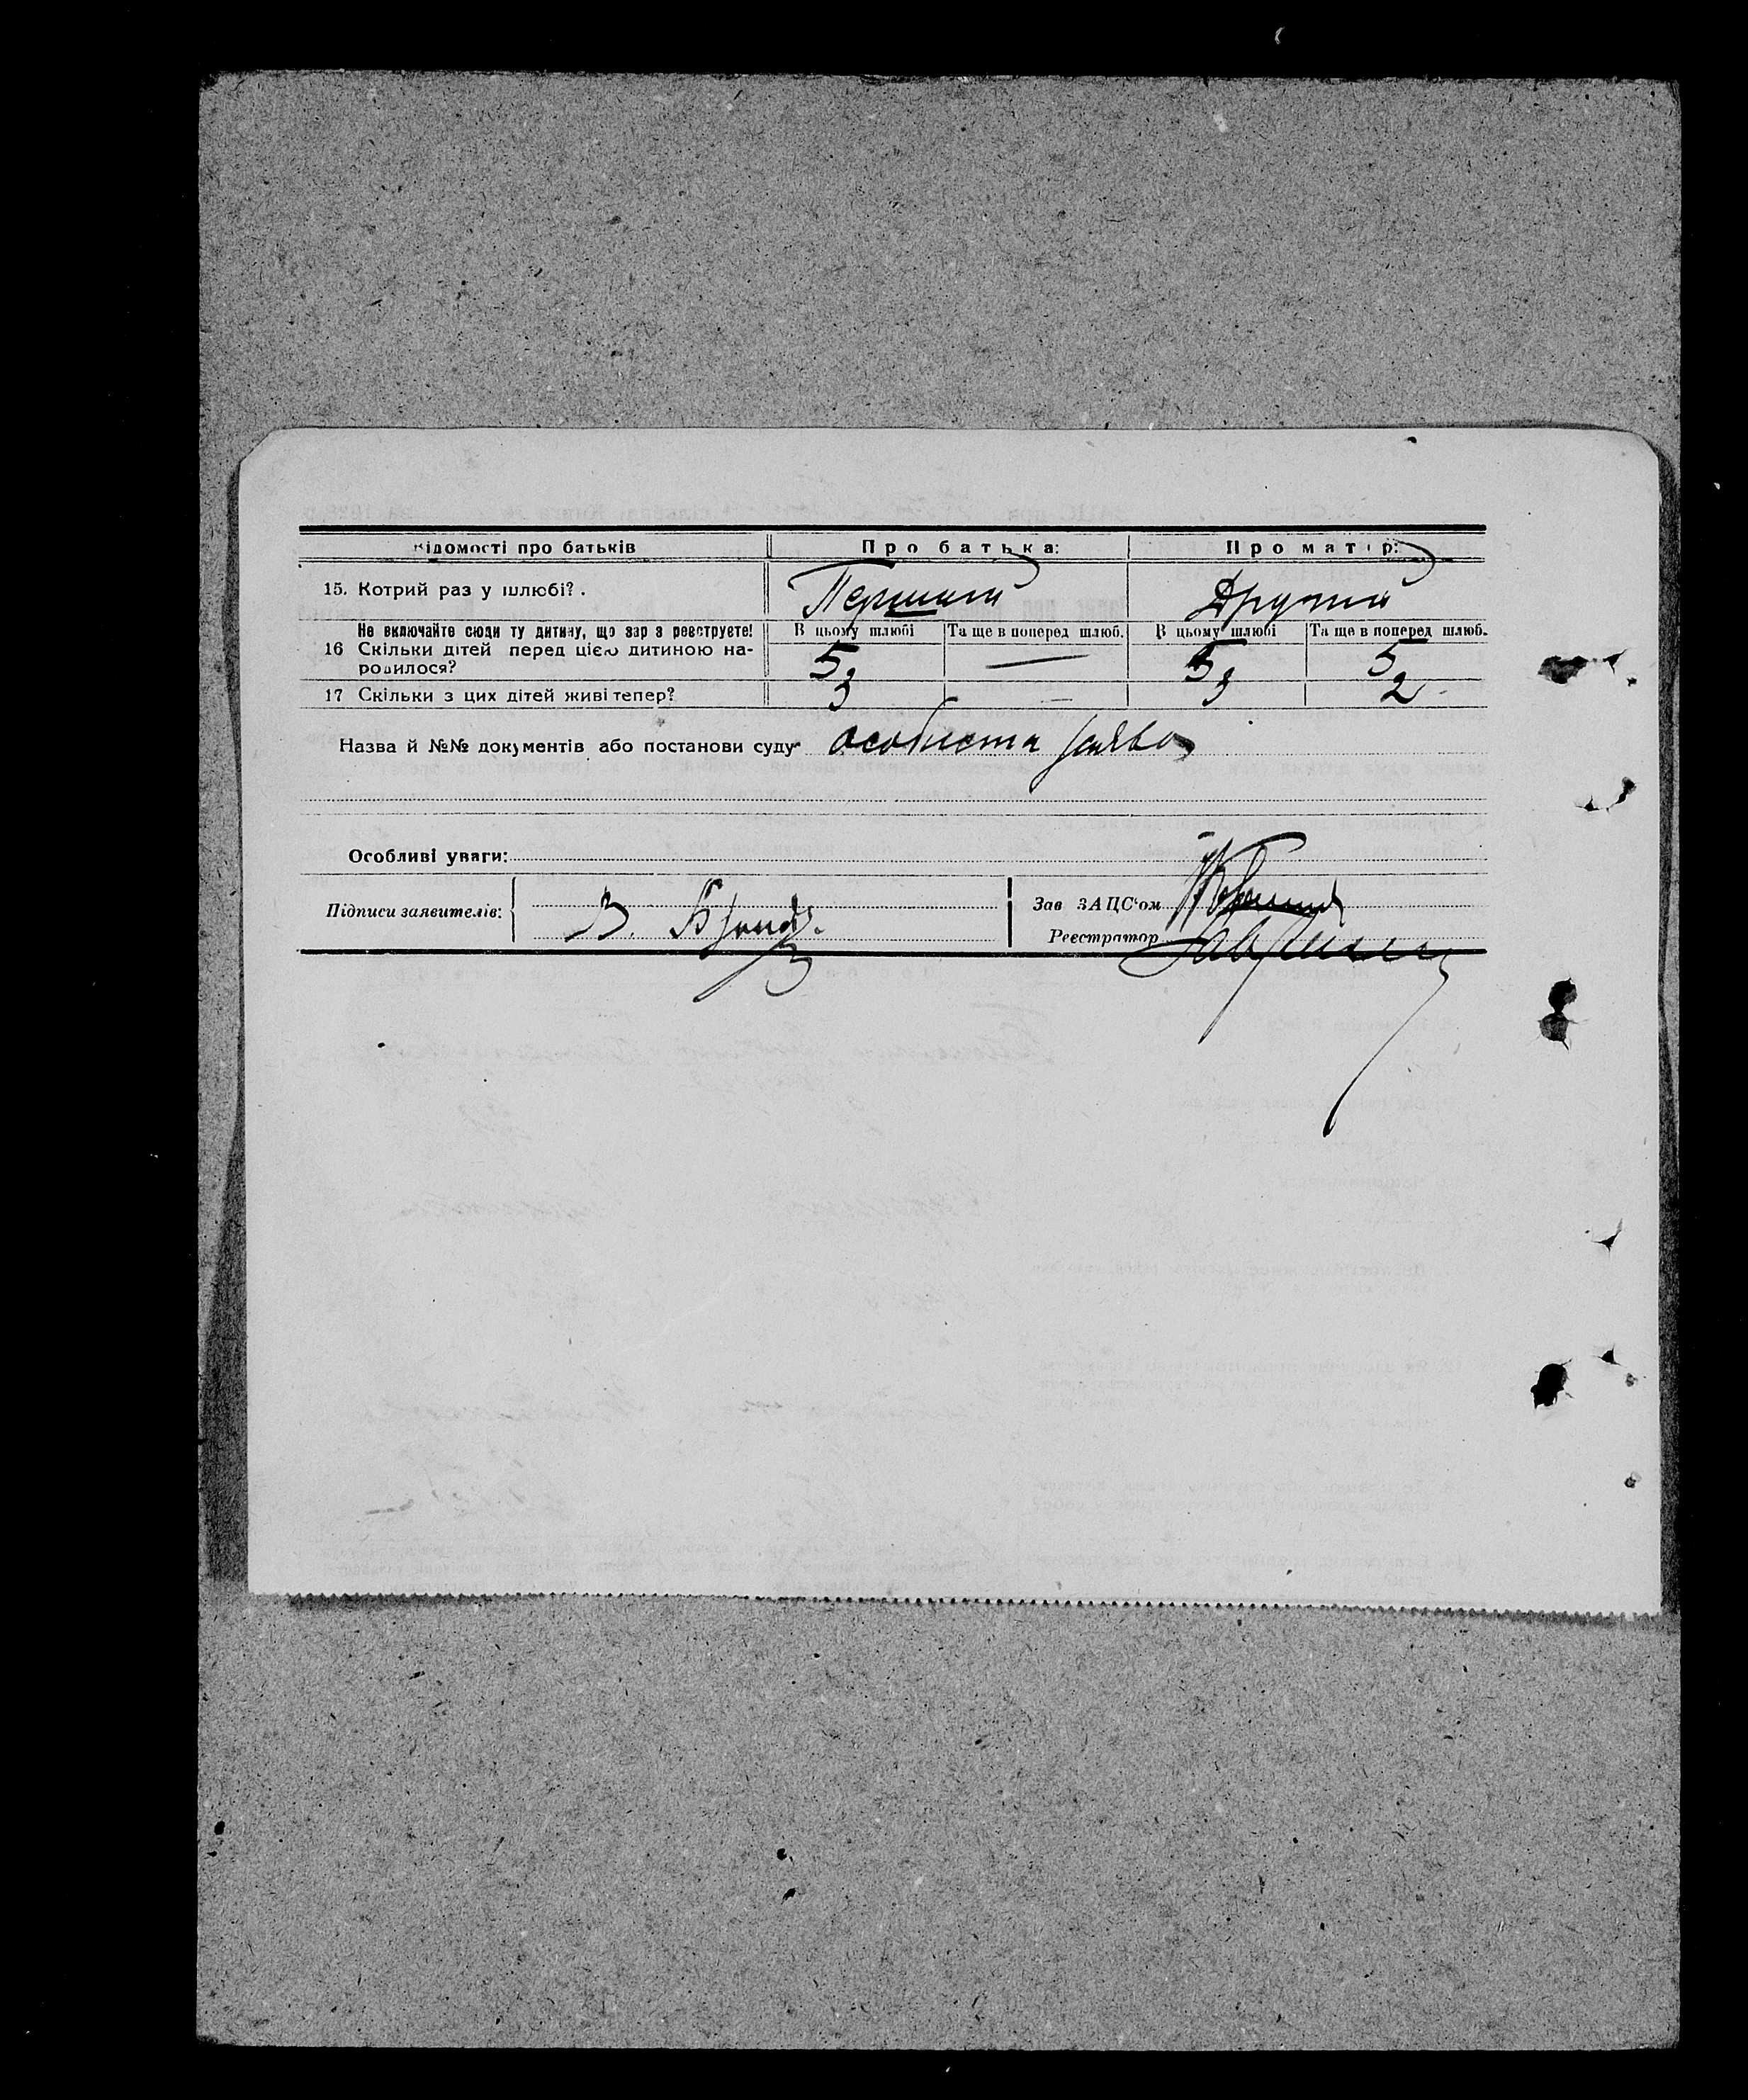 Відомості про батьків Про батька: Про матір:
15. Котрий раз у шлюбі?. Перший Другий
Не включайте сюди ту дитину, що зараз реєструєте! В цьому шлюбі Та ще в поперед шлюб. В цьому шлюбі Та ще в поперед шлюб.
16 Скільки дітей перед цією дитиною на-
родилося? 5 — 5 5
17 Скільки з цих дітей живі тепер? 3 — 3 2
Назва й №№ документів або постанови суду особиста заява
Особливі уваги:
Підписи заявителів: В. Зав ЗАЦС'ом
Реєстратор